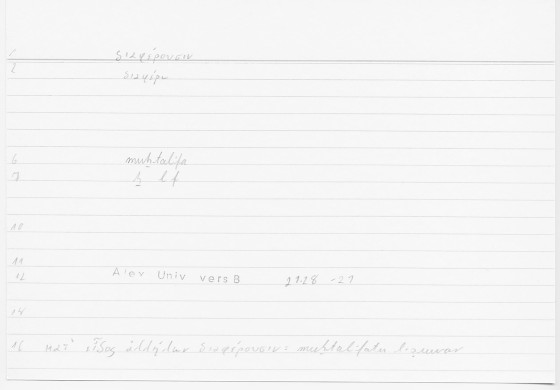 1 διαφέρουσιν
2 διαφέρω
6 muḫtalifa
7 ḫ l f
10
11
12 Alex Univ vers B 2128 -21
14
16 κατ' εἶδος ἀλλήλων διαφέρουσιν: muḫtalifatu